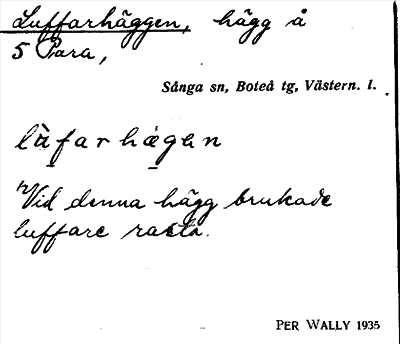 Luffarhäggen, hägg å
5 Para,
Sånga sn, Boteå tg, Västern. l.
lùfarhægen
"Vid denna hägg brukade
luffare rasta.
PER WALLY 1935